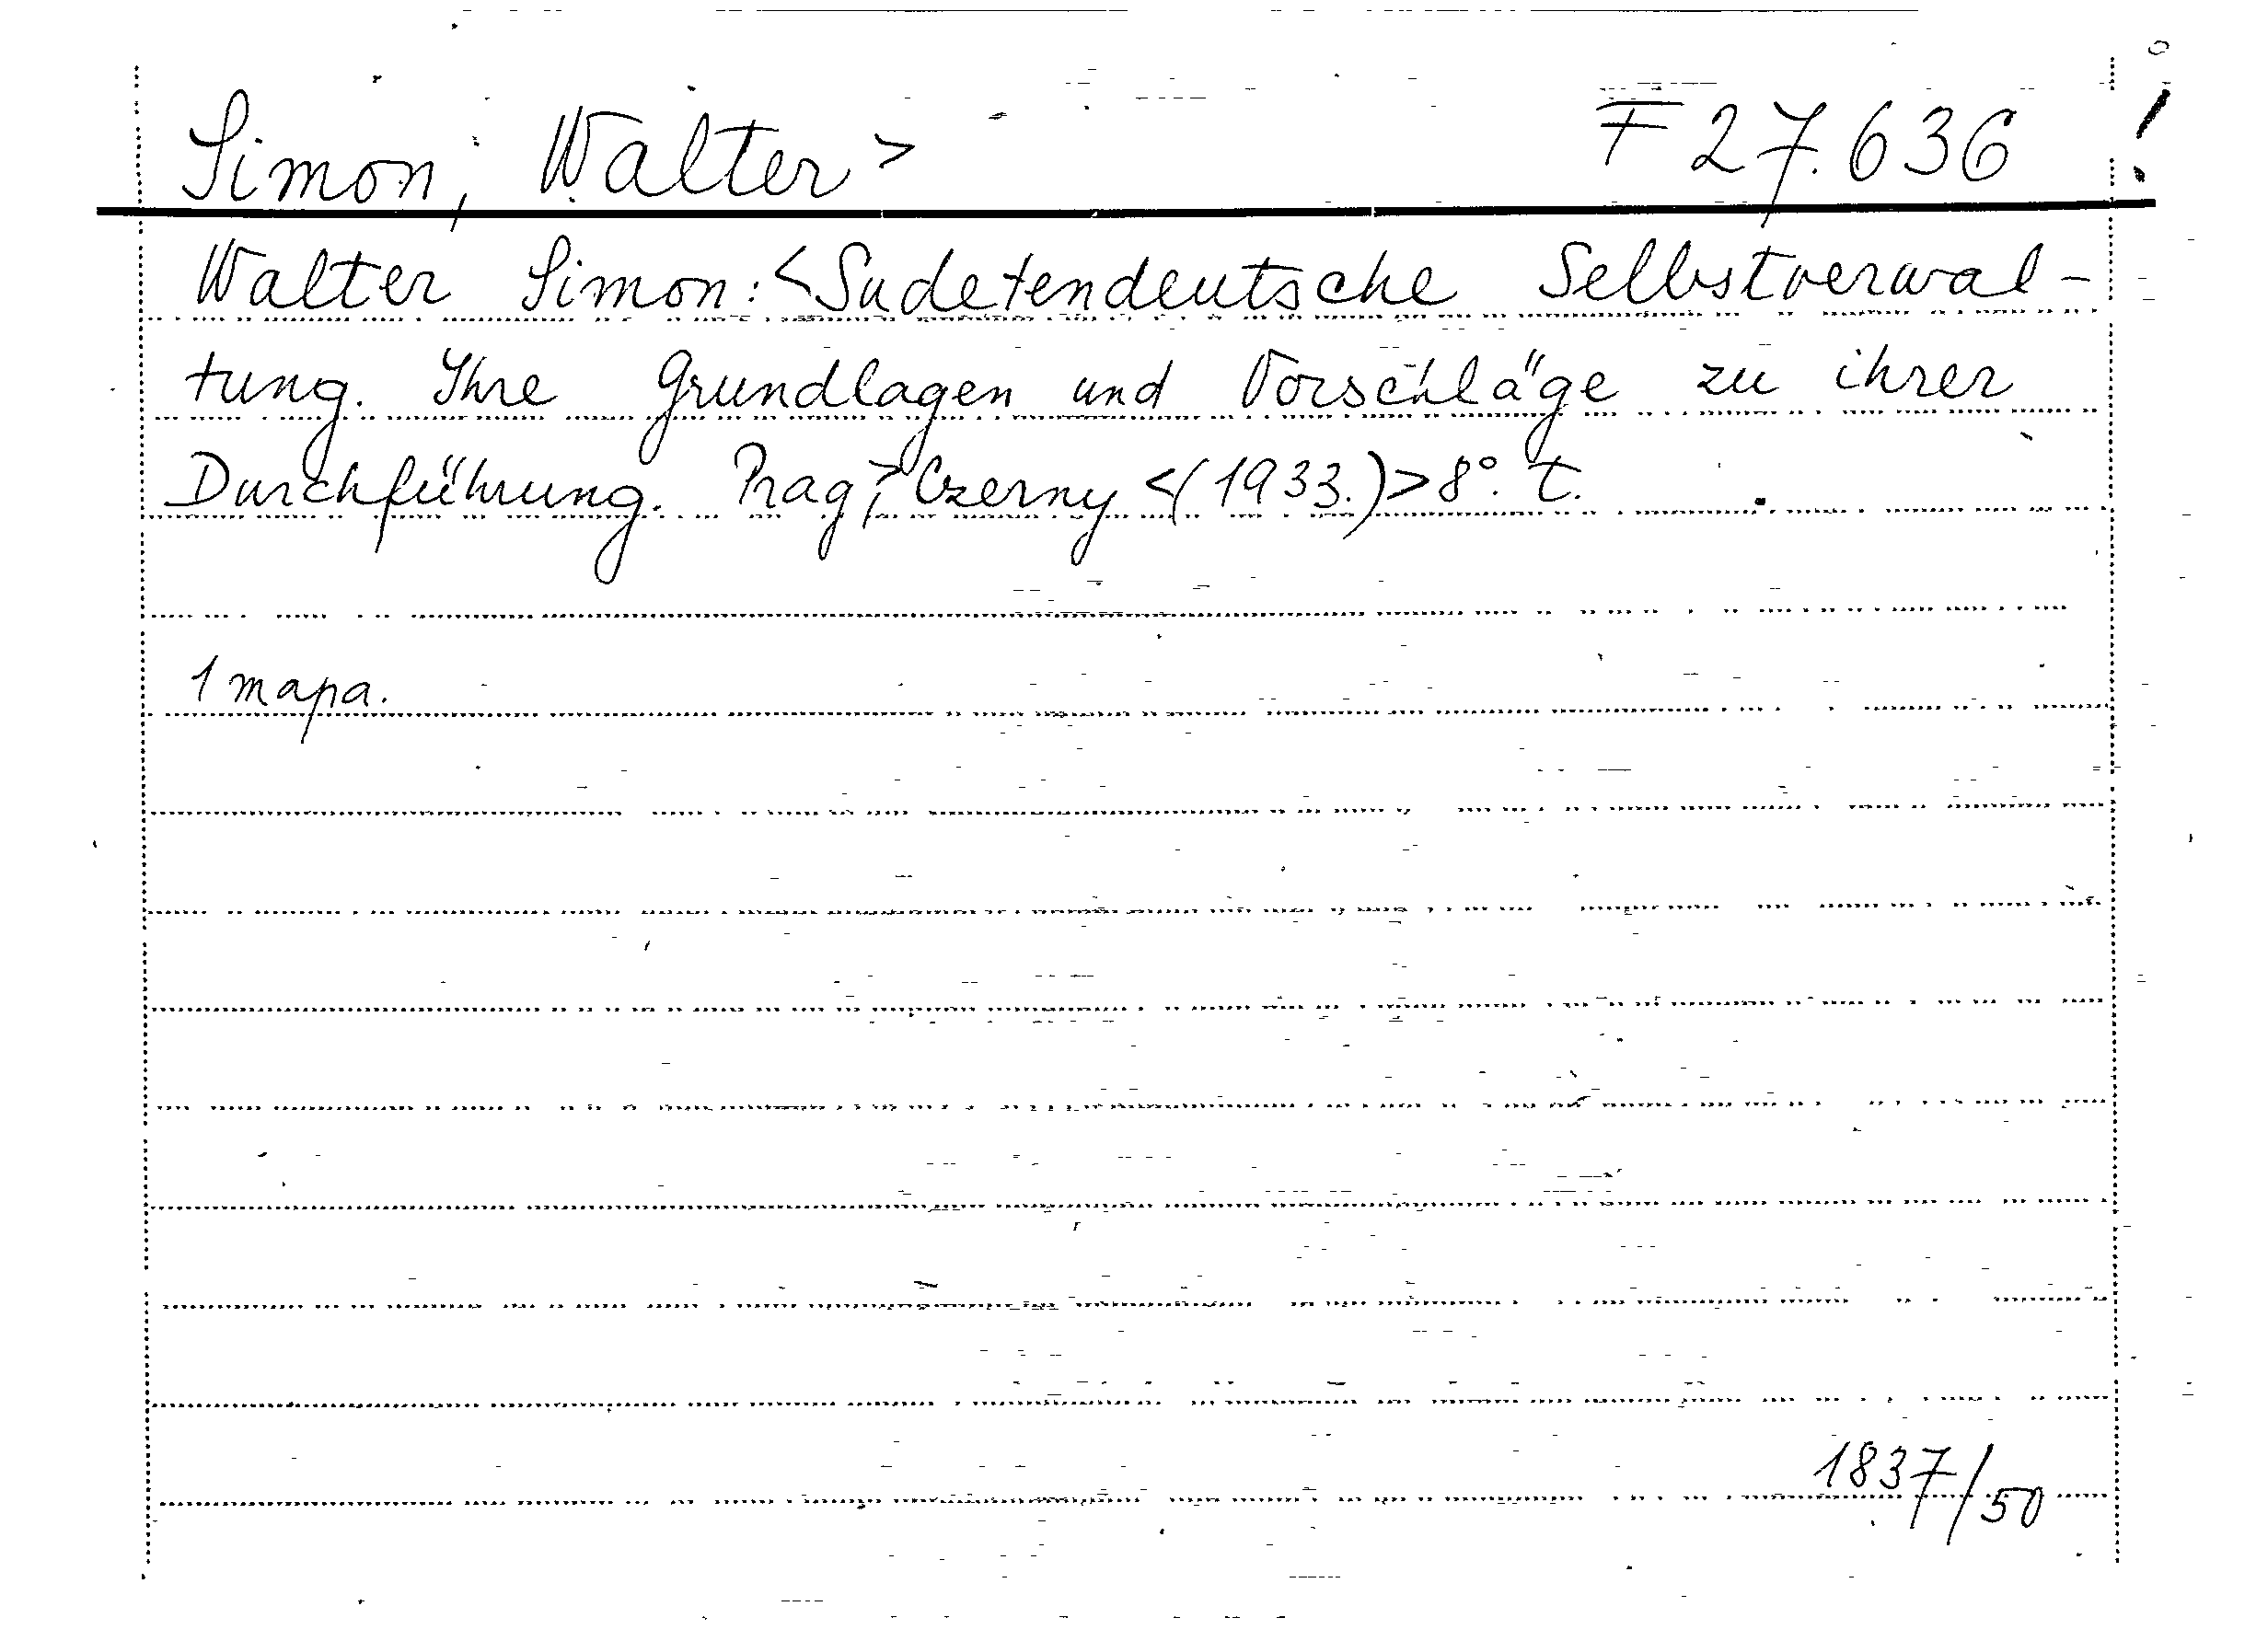 Simon, Walter > F 27.636 !
Walter Simon: <Sudetendeutsche Selbstverwal-
tung. Ihre Grundlagen und Vorschläge zu ihrer
Durchführung. Prag,> Czerny <(1933.)> 8°. t.
1 mapa.
1837/50